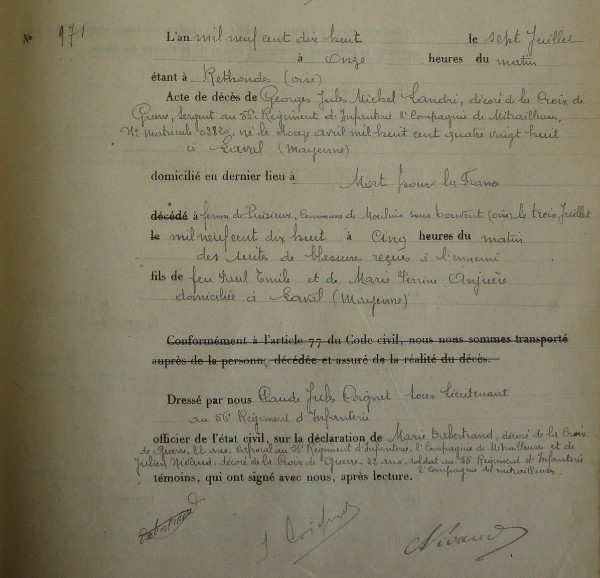 N° 971
L'an mil neuf cent dix huit le sept Juillet
à onze heures du matin
étant à Rethondes (oise)
Acte de décès de Georges Jules Michel Landri, décoré de la Croix de
Guerre, sergent au 36e Régiment d'Infanterie 2e Compagnie de Mitrailleuses,
N° Matricule né le douze avril mil huit cent quatre vingt huit
à Laval (Mayenne)
domicilié en dernier lieu à Mort pour la France
décédé à ferme de Puisieux, Commune de Moulin sous touvent (oise) le trois Juillet
le mil neuf cent dix huit à Cinq heures du matin
des suites de blessures reçues à l'ennemi
fils de feu Paul Emile et de Marie Perrine
domiciliée à Laval (Mayenne)
Conformément à l'article 77 du Code civil, nous nous sommes transporté
auprès de la personne décédée et assuré de la réalité du décès.
Dressé par nous Claude Jules Coignet sous Lieutenant
au 36e Régiment d'Infanterie
officier de l'état civil, sur la déclaration de Marie Dabertrand, décoré de la Croix
de Guerre, 22 ans, Caporal au 36e Régiment d'Infanterie, 2e Compagnie de Mitrailleuses et de
Julien Nivaud, décoré de la Croix de Guerre 22 ans, soldat au 36e Régiment d'Infanterie
2e Compagnie de mitrailleuses.
témoins, qui ont signé avec nous, après lecture.
J. Coignet Nivaud